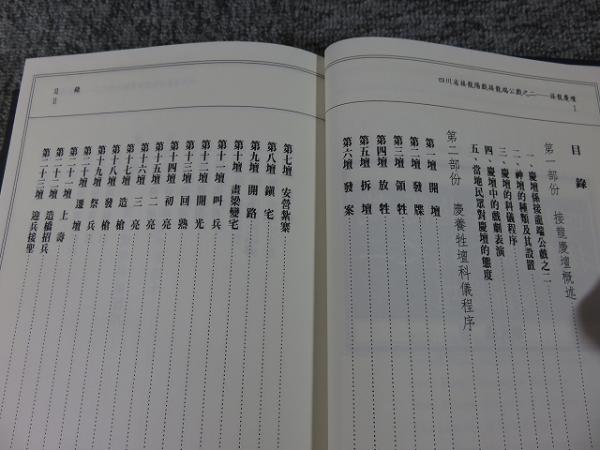 四川省接龍陽戲接龍端公戲之二——接龍慶壇
1
目錄
第一部份 接龍慶壇概述
一、慶壇係接龍端公戲之二
二、神壇的種類及其設置
三、慶壇的科儀程序
四、慶壇中的戲劇表演
五、當地民眾對慶壇的態度
第二部份 慶養牲壇科儀程序
第一壇 開壇
第二壇 發牒
第三壇 領牲
第四壇 放牲
第五壇 拆壇
第六壇 發案
目錄
第七壇 安營紮寨
第八壇 鎮宅
第九壇 開路
第十壇 畫梁變宅
第十一壇 叫兵
第十二壇 開光
第十三壇 回熟
第十四壇 初亮
第十五壇 二亮
第十六壇 三亮
第十七壇 造槍
第十八壇 發槍
第十九壇 祭兵
第二十壇 遷壇
第二十一壇 上壽
第二十二壇 造橋招兵
第二十三壇 迎兵接聖